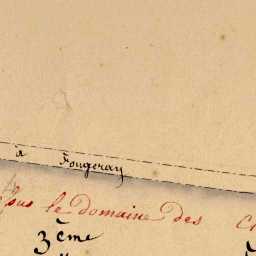 à Fougeray
sous le domaine des
3ème